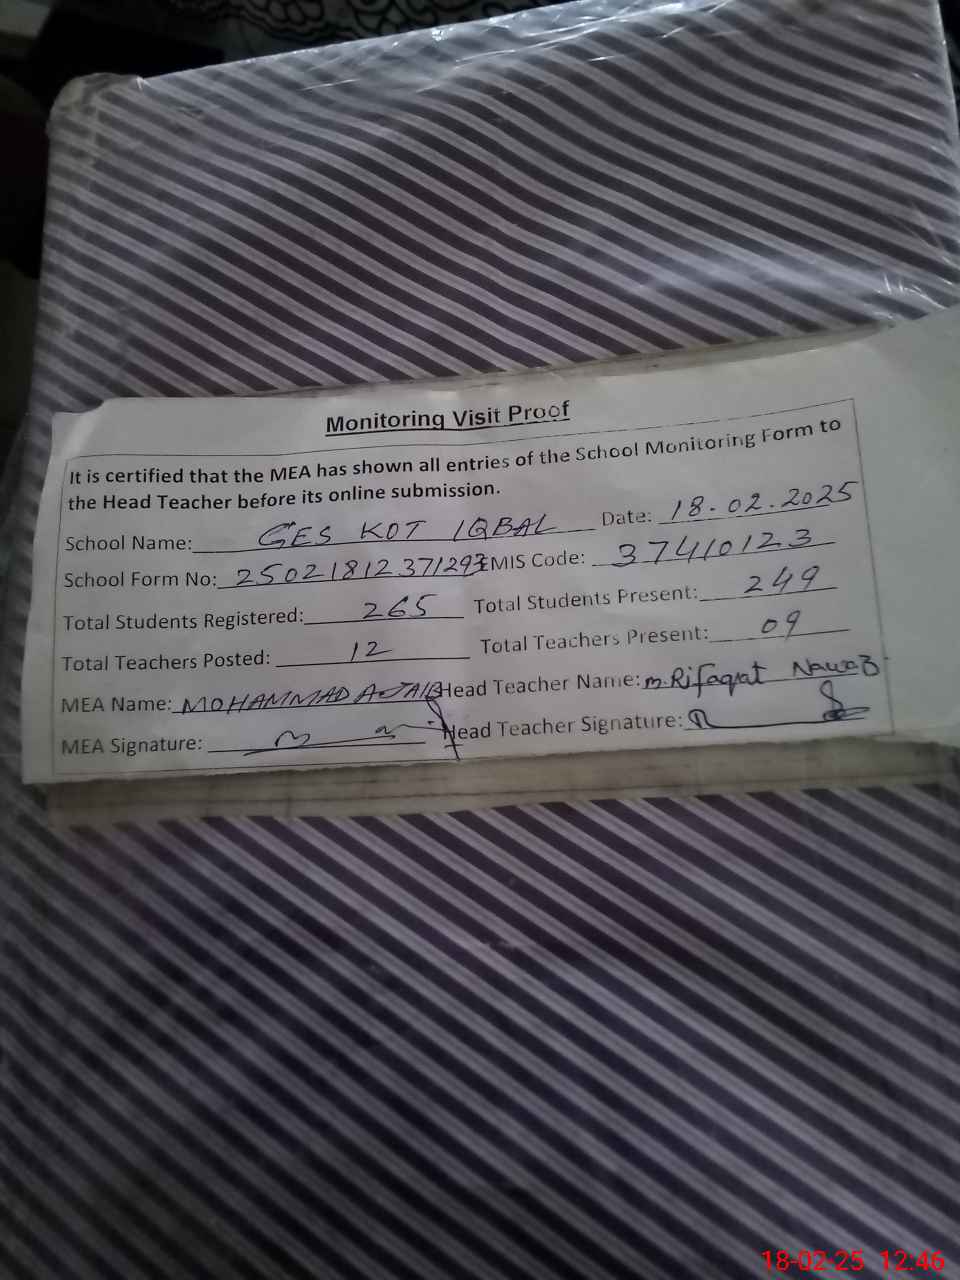 Monitoring Visit Proof
It is certified that the MEA has shown all entries of the School Monitoring Form to
the Head Teacher before its online submission.
School Name: GES KOT IQBAL Date: 18.02.2025
School Form No: EMIS Code: 37410123
Total Students Registered: 265 Total Students Present: 249
Total Teachers Posted: 12 Total Teachers Present: 09
MEA Name: MOHAMMAD AJAIB Head Teacher Name: M.Rifaqat Nawab
MEA Signature: Head Teacher Signature:
18-02-25 12:46